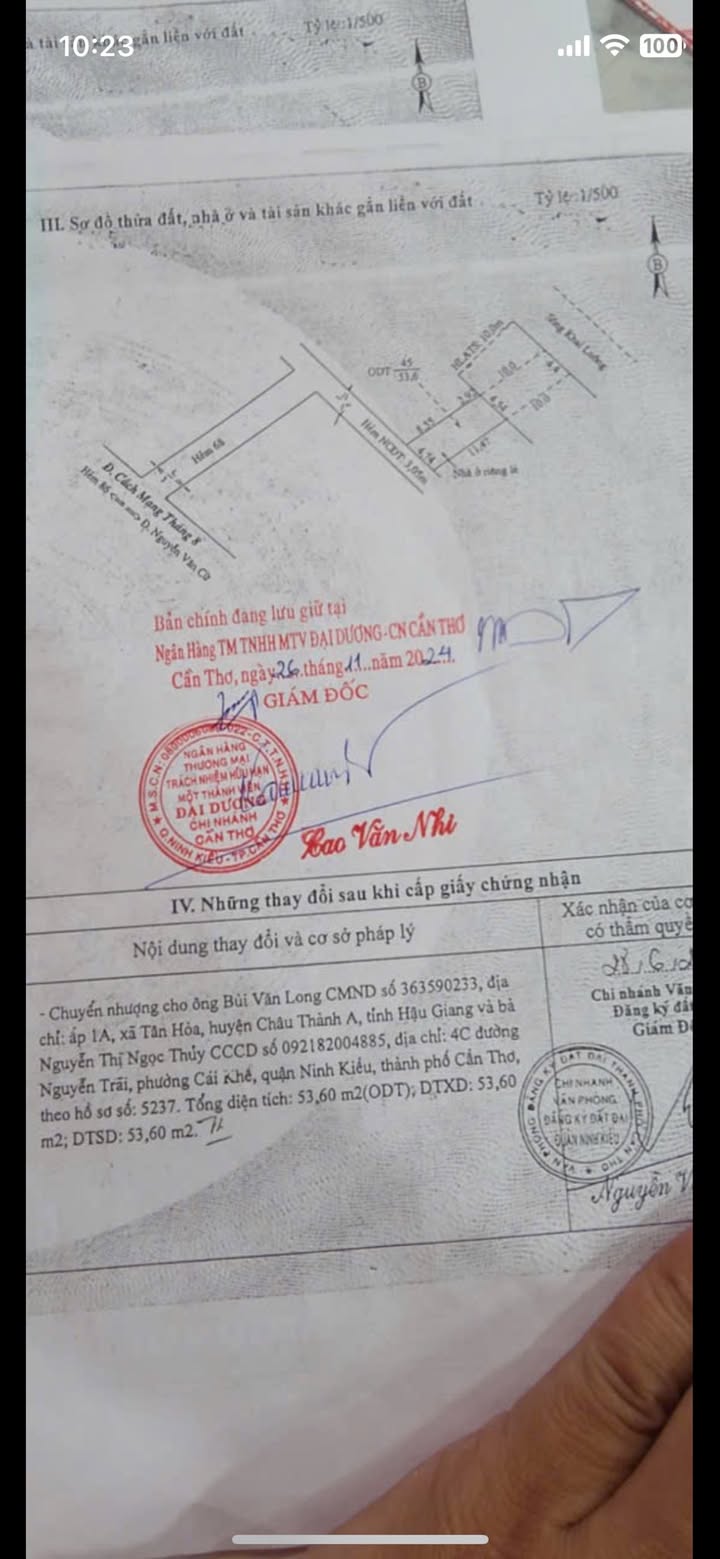 10:23
100
gắn liền với đất
Tỷ lệ: 1/500
B
III. Sơ đồ thửa đất, nhà ở và tài sản khác gắn liền với đất
Tỷ lệ: 1/500
B
Sông Khai Luông
HLATS: 10,0m
ODT 45/53,6
10,0
4,4
2,92
4,54
10,0
8,55
11,47
4,74
Hẻm NCĐT: 3,05m
Nhà ở riêng lẻ
Hẻm 68
Đ. Cách Mạng Tháng 8
Đ. Nguyễn Văn Cừ
Bản chính đang lưu giữ tại
Ngân Hàng TM TNHH MTV ĐẠI DƯƠNG-CN CẦN THƠ
Cần Thơ, ngày 26 tháng 11 năm 2024.
GIÁM ĐỐC
NGÂN HÀNG
THƯƠNG MẠI
TRÁCH NHIỆM HỮU HẠN
MỘT THÀNH VIÊN
ĐẠI DƯƠNG
CHI NHÁNH
CẦN THƠ
Q.NINH KIỀU-TP.CẦN THƠ
Cao Văn Nhi
IV. Những thay đổi sau khi cấp giấy chứng nhận
Nội dung thay đổi và cơ sở pháp lý
Xác nhận của cơ
có thẩm quyề
- Chuyển nhượng cho ông Bùi Văn Long CMND số 363590233, địa
chỉ: ấp 1A, xã Tân Hòa, huyện Châu Thành A, tỉnh Hậu Giang và bà
Nguyễn Thị Ngọc Thủy CCCD số 092182004885, địa chỉ: 4C đường
Nguyễn Trãi, phường Cái Khế, quận Ninh Kiều, thành phố Cần Thơ,
theo hồ sơ số: 5237. Tổng diện tích: 53,60 m2(ODT); DTXD: 53,60
m2; DTSD: 53,60 m2.
Chi nhánh Văn
Đăng ký đấ
Giám Đ
CHI NHÁNH
VĂN PHÒNG
ĐĂNG KÝ ĐẤT ĐAI
QUẬN NINH KIỀU
Nguyễn V